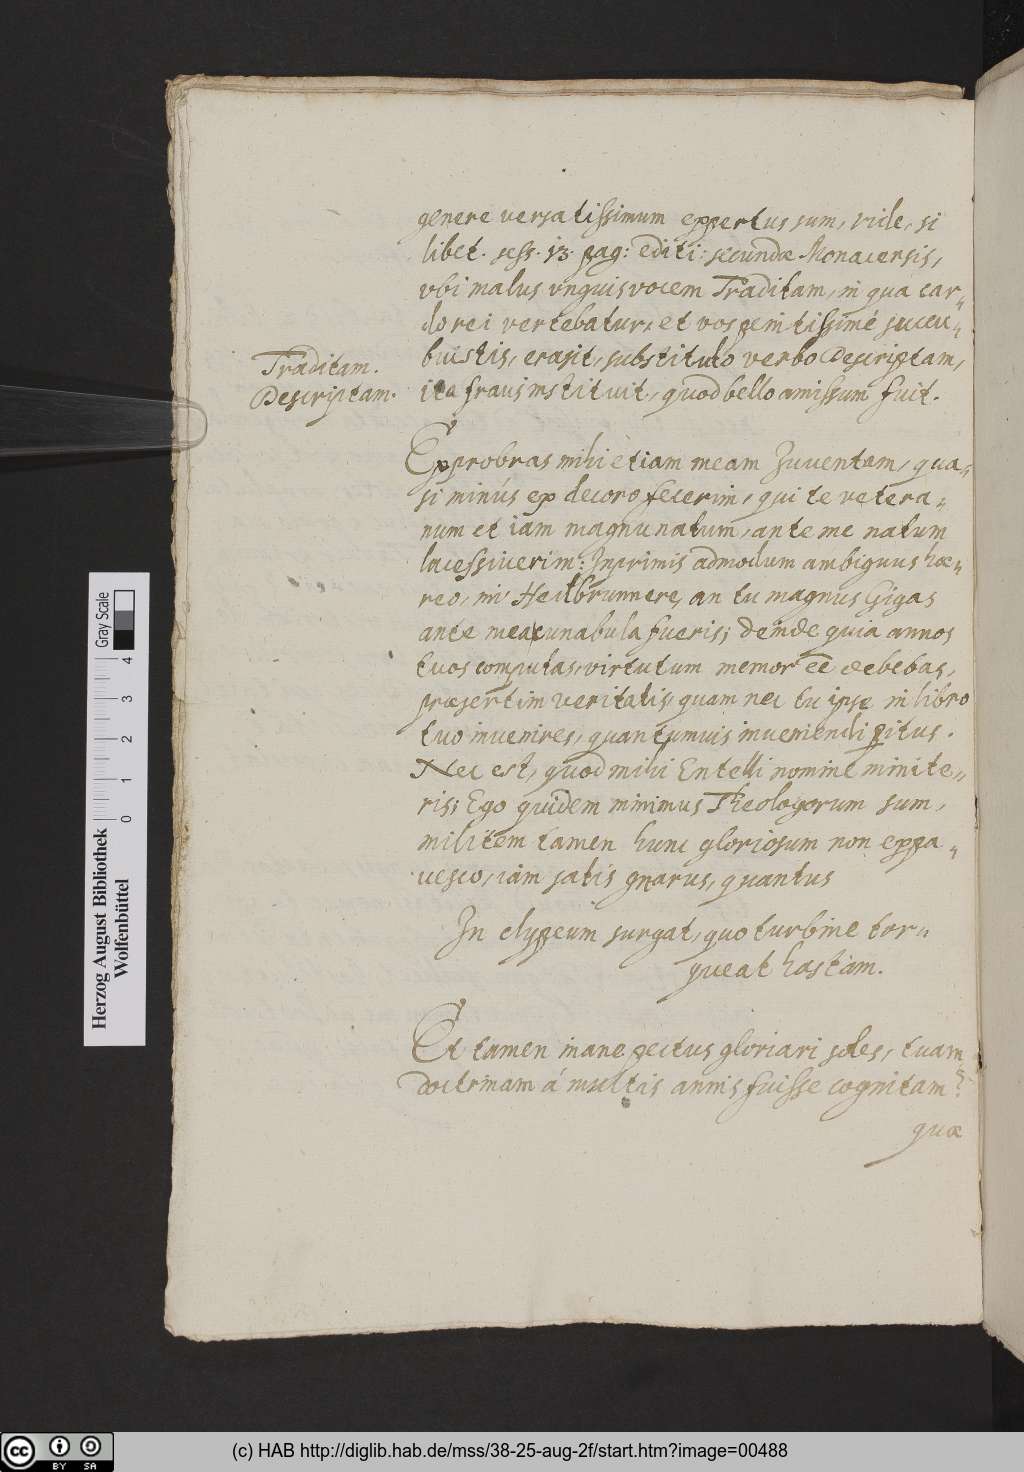 genere versatissimum expertus sum, vide, si
libet. sess. 13. pag: editi: secundæ Monacensis,
vbi malus vnguis vocem Traditam, in qua car„
do rei vertebatur, et vos penitissimé succu„
buistis, erasit, substituto verbo Descriptam,
ita fraus instituit, quod bello amissum fuit.
Traditam.
Descriptam.
Exprobras mihi etiam meam Juventam, qua„
si minús ex decoro fecerim, qui te vetera„
num et iam magnu natum, ante me natum
lacessiverim: Inprimis admodum ambiguus hæ„
reo, mi Heilbrunnere, an tu magnus Gigas
ante mea cunabula fueris; deinde quia annos
tuos computas, virtutum memor ee debebas,
præsertim veritatis, quam nec tu ipse in libro
tuo invenires, quantumvis inveniendi pitus.
Nec est, quod mihi Entelli nomine minite„
ris; Ego quidem minimus Theologorum sum,
militem tamen hunc gloriosum non expa„
vesco, iam satis gnarus, quantus
In clypeum surgat, quo turbine tor„
queat hastam.
Et tamen inane pectus gloriari soles, tuam
doctrinam á multis annis fuisse cognitam?
quæ
Herzog August Bibliothek
Wolfenbüttel
Gray Scale
0 1 2 3 4
cc BY SA
(c) HAB http://diglib.hab.de/mss/38-25-aug-2f/start.htm?image=00488